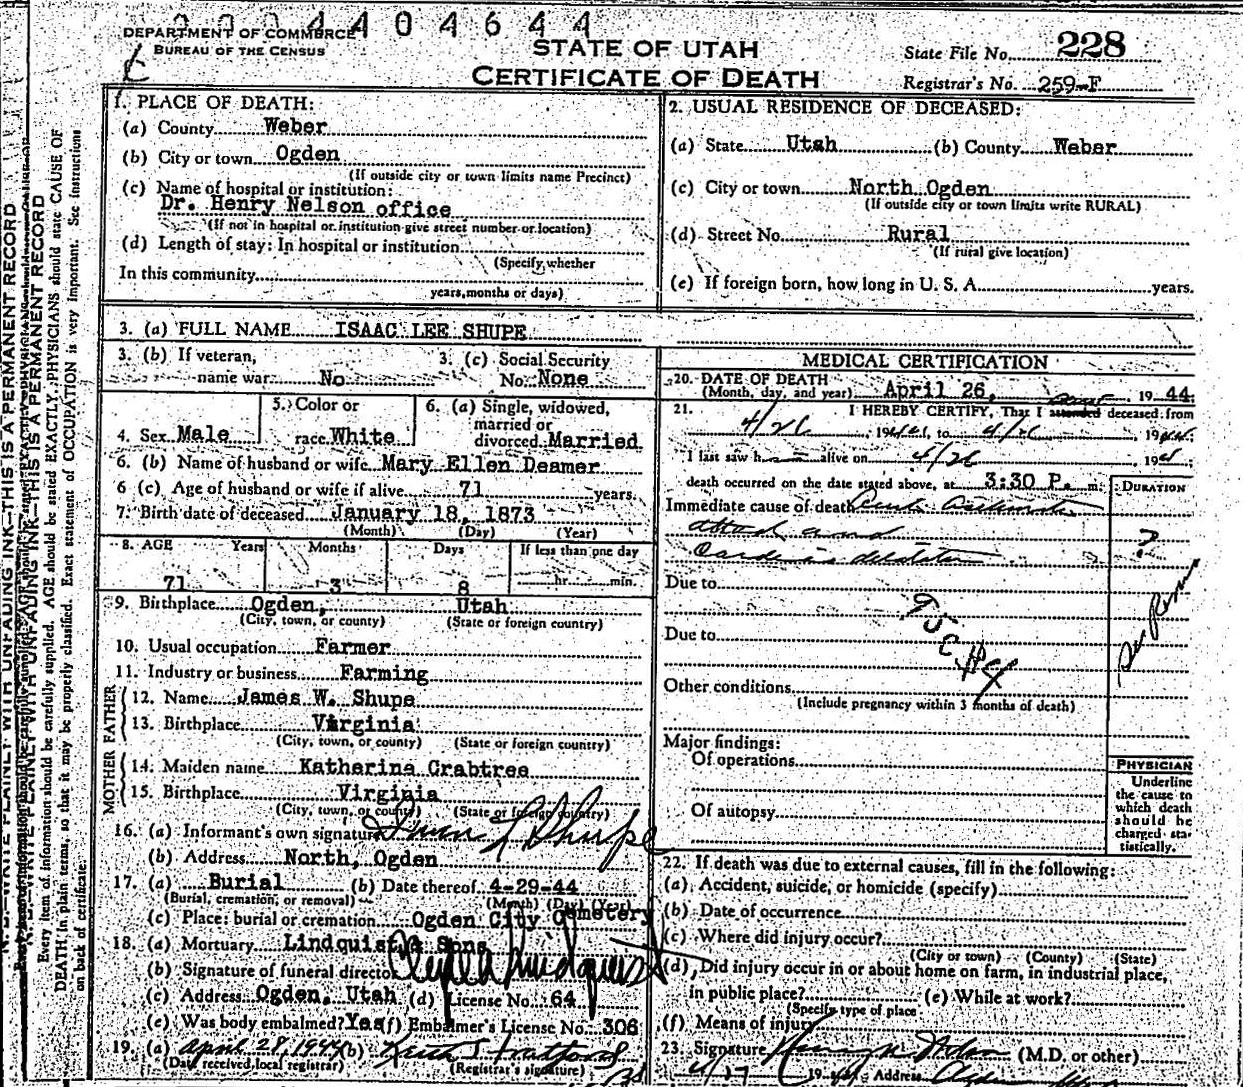 4404644
DEPARTMENT OF COMMERCE
BUREAU OF THE CENSUS
STATE OF UTAH
CERTIFICATE OF DEATH
State File No. 228
Registrar's No. 259-F
1. PLACE OF DEATH:
(a) County Weber
(b) City or town Ogden
(If outside city or town limits name Precinct)
(c) Name of hospital or institution:
Dr. Henry Nelson office
(If not in hospital or institution give street number or location)
(d) Length of stay: In hospital or institution
(Specify whether
In this community
years, months or days)
2. USUAL RESIDENCE OF DECEASED:
(a) State Utah (b) County Weber
(c) City or town North Ogden
(If outside city or town limits write RURAL)
(d) Street No. Rural
(If rural give location)
(e) If foreign born, how long in U. S. A. years.
3. (a) FULL NAME ISAAC LEE SHUPE
3. (b) If veteran,
name war No
3. (c) Social Security
No. None
4. Sex Male
5. Color or
race White
6. (a) Single, widowed,
married or
divorced Married
6. (b) Name of husband or wife Mary Ellen Deamer
6 (c) Age of husband or wife if alive 71 years.
7. Birth date of deceased January 18, 1873
(Month) (Day) (Year)
8. AGE Years Months Days If less than one day
71 3 8 hr. min.
9. Birthplace Ogden, Utah
(City, town, or county) (State or foreign country)
10. Usual occupation Farmer
11. Industry or business Farming
FATHER
12. Name James W. Shupe
13. Birthplace Virginia
(City, town, or county) (State or foreign country)
MOTHER
14. Maiden name Katherine Crabtree
15. Birthplace Virginia
(City, town, or county) (State or foreign country)
16. (a) Informant's own signature Shupe
(b) Address North, Ogden
17. (a) Burial (b) Date thereof 4-29-44
(Burial, cremation, or removal) (Month) (Day) (Year)
(c) Place: burial or cremation Ogden City Cemetery
18. (a) Mortuary Lindquist & Sons
(b) Signature of funeral director Clyde A Lindquist
(c) Address Ogden, Utah (d) License No. 64
(e) Was body embalmed? Yes (f) Embalmer's License No. 306
19. (a) April 28, 1944 (b) Keith Stratford
(Date received local registrar) (Registrar's signature)
MEDICAL CERTIFICATION
20. DATE OF DEATH
(Month, day, and year) April 26, 19 44
21. I HEREBY CERTIFY, That I attended deceased from
4/26, 1944, to 4/26, 1944
I last saw h alive on 4/26, 194
death occurred on the date stated above, at 3:30 P. m.
DURATION
Immediate cause of death
attack and
dilatation
?
Due to
Due to
Other conditions
(Include pregnancy within 3 months of death)
Major findings:
Of operations
Of autopsy
PHYSICIAN
Underline
the cause to
which death
should be
charged sta-
tistically.
22. If death was due to external causes, fill in the following:
(a) Accident, suicide, or homicide (specify)
(b) Date of occurrence
(c) Where did injury occur?
(City or town) (County) (State)
(d) Did injury occur in or about home on farm, in industrial place,
in public place? (e) While at work?
(Specify type of place
(f) Means of injury
23. Signature Henry Nelson (M.D. or other)
4/27 19 Address
THIS IS A PERMANENT RECORD
Every item of information should be carefully supplied. AGE should be stated EXACTLY. PHYSICIANS should state CAUSE OF
DEATH in plain terms, so that it may be properly classified. Exact statement of OCCUPATION is very important. See instructions
on back of certificate.